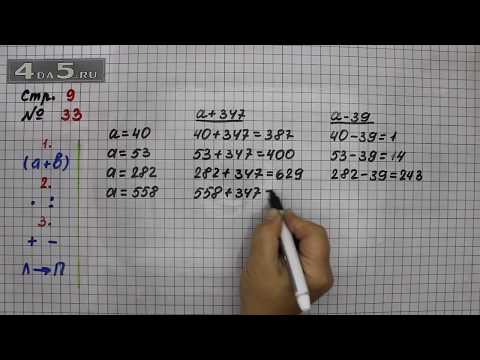 4DA5.RU
Стр. 9
№ 33
1.
(а+в)
2.
· :
3.
+ −
Л→П
a=40
a=53
a=282
a=558
a+347
40+347=387
53+347=400
282+347=629
558+347=
a-39
40-39=1
53-39=14
282-39=243